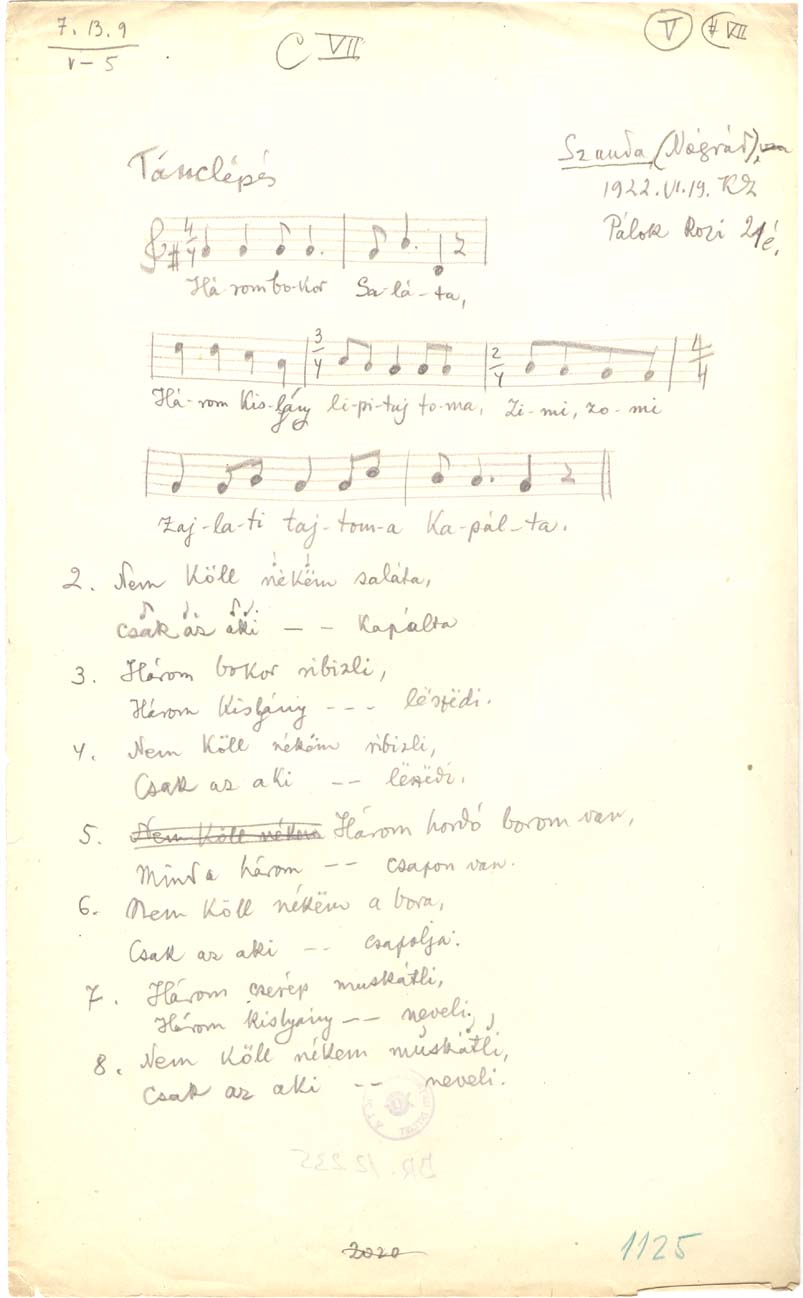 7. 13. 9
V – 5
C VII
V # VII
Tánclépés
Szanda, (Nógrád),
1922. VI. 19. KZ
Pálok Rozi 21 é.
4/4
Há-rom bo-kor Sa-lá-ta,
3/4 2/4 4/4
Há-rom Kis-lány li-pi-taj to-ma, Zi-mi, zo-mi
Zaj-la-ti taj-tom-a Ka-pál-ta.
2. Nem Köll nékëm saláta,
Csak az aki – – Kapálta
3. Három bokor ribizli,
Három Kislány - - - lëszëdi.
4. Nem Köll nékëm ribizli,
Csak az aki – – lëszëdi.
5. Nem Köll nékem Három hordó borom van,
Mind a három – – csapon van.
6. Nem Köll nékëm a bora,
Csak az aki – – csapolja.
7. Három cserép muskátli,
Három kislyány – – neveli.
8. Nem Köll nékem muskátli,
Csak az aki – – neveli.
BR. 12 235
2020
1125